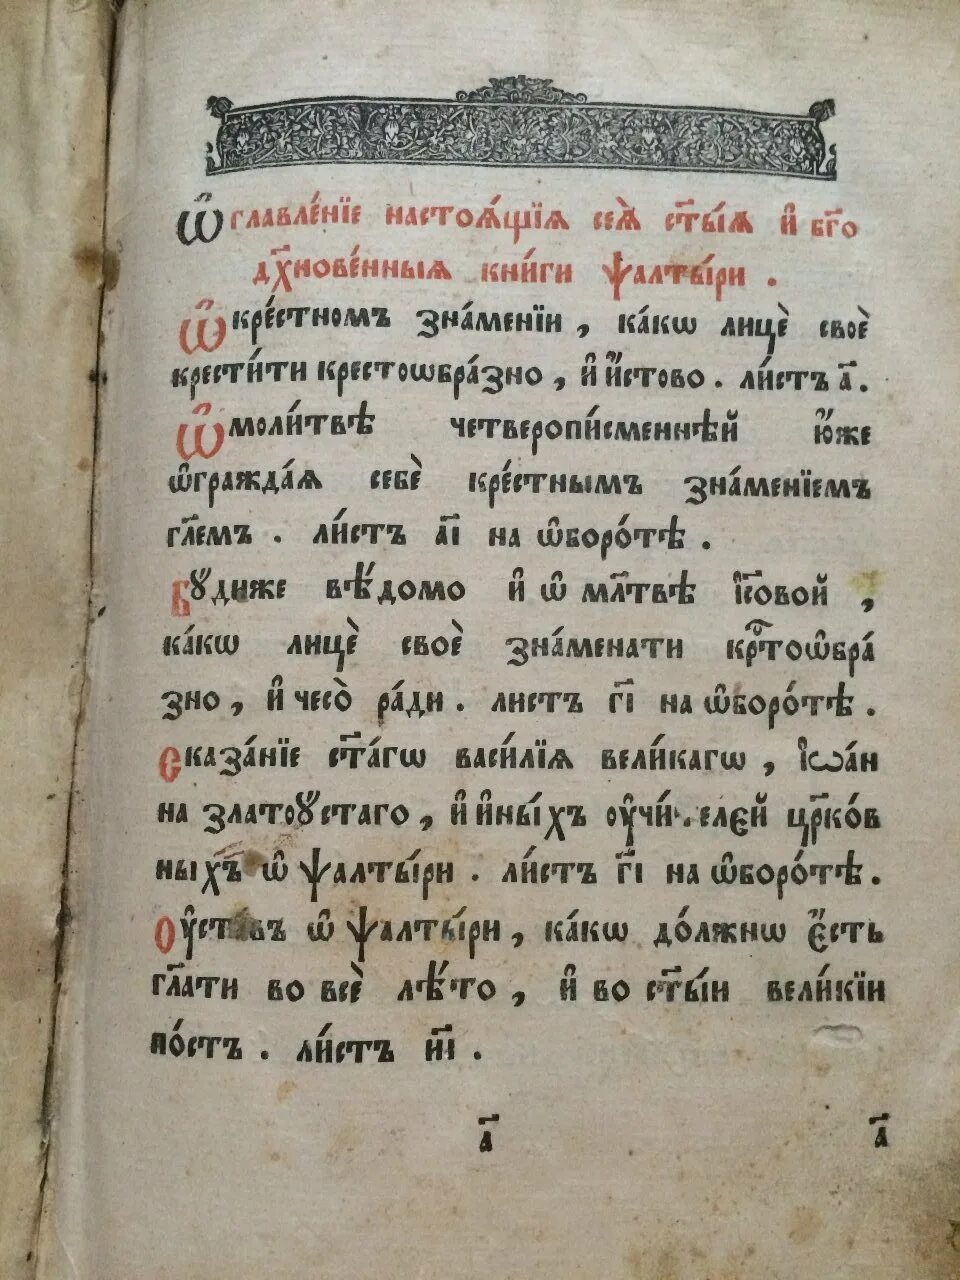 Ѡ҆главле́нїе настоѧ́щїѧ сеѧ̀ ст҃ы́ѧ и҆ бг҃о
дх҃нове́нныѧ кни́ги ѱалты́ри .
Ѡ҆ кре́стномъ зна́менїи , ка́кѡ лицѐ своѐ
крести́ти крестоѡбра́зно , и҆ и҆́стово . ли́стъ а҃ .
Ѡ҆ моли́твѣ четверопи́сменнѣй ю҆́же
ѡ҆гражда́ѧ себѐ кре́стнымъ зна́менїемъ
гл҃емъ . ли́стъ а҃і на ѡ҆боро́тѣ .
Бꙋ́диже вѣ́домо и҆ ѡ҆ мл҃твѣ і҆с҃овой ,
ка́кѡ лицѐ своѐ зна́менати крⷭ҇тоѡ҆бра
зно , и҆ чесѡ̀ ра́ди . листъ г҃і на ѡ҆боро́тѣ .
Сказа́нїе ст҃а́гѡ васи́лїѧ вели́кагѡ , і҆ѡа́н
на златоꙋ́стаго , и҆ и҆ны́хъ ᲂу҆чи́ елей црⷦ҇о́в
ны́хъ ѡ҆ ѱалты́ри . ли́стъ г҃і на ѡ҆боро́тѣ .
Оу҆ста́въ ѡ҆ ѱалты́ри , ка́кѡ до́лжнѡ є҆́сть
гл҃ати во всѐ лѣ́то , и҆ во ст҃ы́и вели́кїи
по́стъ . ли́стъ и҃і .
а҃ а҃